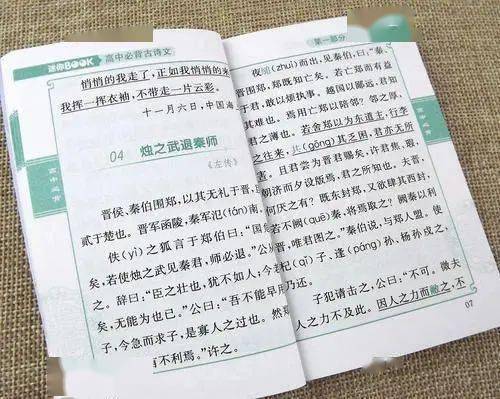 迷你BOOK 高中必背古诗文
悄悄的我走了，正如我悄悄的来
我挥一挥衣袖，不带走一片云彩。
十一月六日，中国海
04 烛之武退秦师
《左传》
晋侯、秦伯围郑，以其无礼于晋，
贰于楚也。晋军函陵，秦军氾(fán)南。
佚(yì)之狐言于郑伯曰：“国
矣，若使烛之武见秦君，师必退。”公
之。辞曰：“臣之壮也，犹不如人；今
矣，无能为也已。”公曰：“吾不能早用
子，今急而求子，是寡人之过也。然郑
有不利焉。”许之。
高中必背
第一部分
夜缒(zhuì)而出，见秦伯，曰：“秦、
晋围郑，郑既知亡矣。若亡郑而有益
于君，敢以烦执事。越国以鄙远，君知
其难也。焉用亡郑以陪邻？邻之厚，
君之薄也。若舍郑以为东道主，行李
之往来，共(gōng)其乏困，君亦无所
害。且君尝为晋君赐矣，许君焦、瑕，
朝济而夕设版焉，君之所知也。夫晋，
何厌之有？既东封郑，又欲肆其西封，
若不阙(quē)秦，将焉取之？阙秦以利
晋，唯君图之。”秦伯说，与郑人盟。使
杞(qǐ)子、逢(páng)孙、杨孙戍之，
乃还。
子犯请击之，公曰：“不可。微夫
人之力不及此。因人之力而敝之，不
07